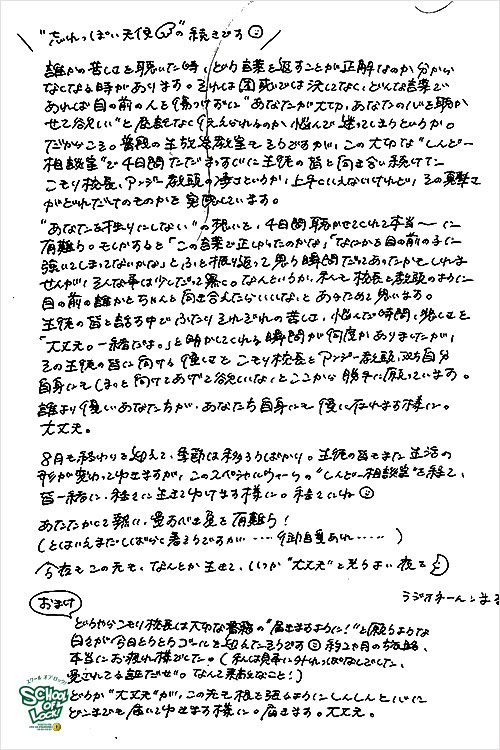 "忘れっぽい天使" の続きです
誰かの苦しさを聴いた時、どう言葉を返すことが正解なのか分から
なくなる時があります。それは困惑では決してなく、どんな言葉で
あれば目の前の人を傷つけずに"あなたが大切、あなたの心を聴か
せて欲しい"と 伝えられるのか悩んで迷ってしまうというか。
だからこそ。普段の生放送教室もそうですが、この大切な"しんどー
相談室"で4日間ただまっすぐに生徒の皆と向き合い続けてた
こもり校長、アンジー教頭の凄さというか、上手くいえないけれど、その真摯さ
がどれだけのものかを実感しています。
"あなたを独りにしない"の想いを、4日間聴かせてくれて本当〜に
有難う。もしかすると「この言葉で正しかったのかな」「なにかを目の前の子に
強いてしまってないかな」とふと振り返って思う瞬間だってあったかもしれま
せんが、そんな事は少しだって無く。なんというか、私も校長と教頭のように
目の前の誰かとちゃんと向き合えたらいいな、とあらためて思います。
生徒の皆と話す中で、ふたりそれぞれの苦しさ、悩んだ時間、悲しさを
「大丈夫。一緒だよ。」と明かしてくれる瞬間が何度かありましたが、
その生徒の皆に向ける優しさを こもり校長とアンジー教頭、ご自分
自身にもしっと向けてあげて欲しいな、とここから勝手に願っています。
誰より優しいあなた方が、あなたたち自身にも優しくなれます様に。
大丈夫。
8月も終わりを迎えて、季節は移ろうばかり。生徒の皆もまた生活の
形が変わってゆきますが、このスペシャルウィークの"しんどー相談室"を経て、
皆一緒に、社会に生きてゆけます様に。
あなたたかくて 熱い、愛すべき夏を有難う!
(とはいえまだしばらく暑そうですが……ご自愛あれ……)
今夜もこの先も、なんとか生きて、いつか"大丈夫"と光らす夜を
ラジオネーム
おまけ
どうやらこもり校長は大切な書籍の"届きますように!"と願うような
日々が今日とうとうゴールを迎えたそうです
本当にお疲れ様でした。
愛されてる証だぜ。なんて素敵なこと!)
どうか"大丈夫"が、この先も根を張るようにしんしんと
どこまでも届いてゆきます様に。届きます。大丈夫。
スクール オブ ロック!
SCHOOL OF LOCK!